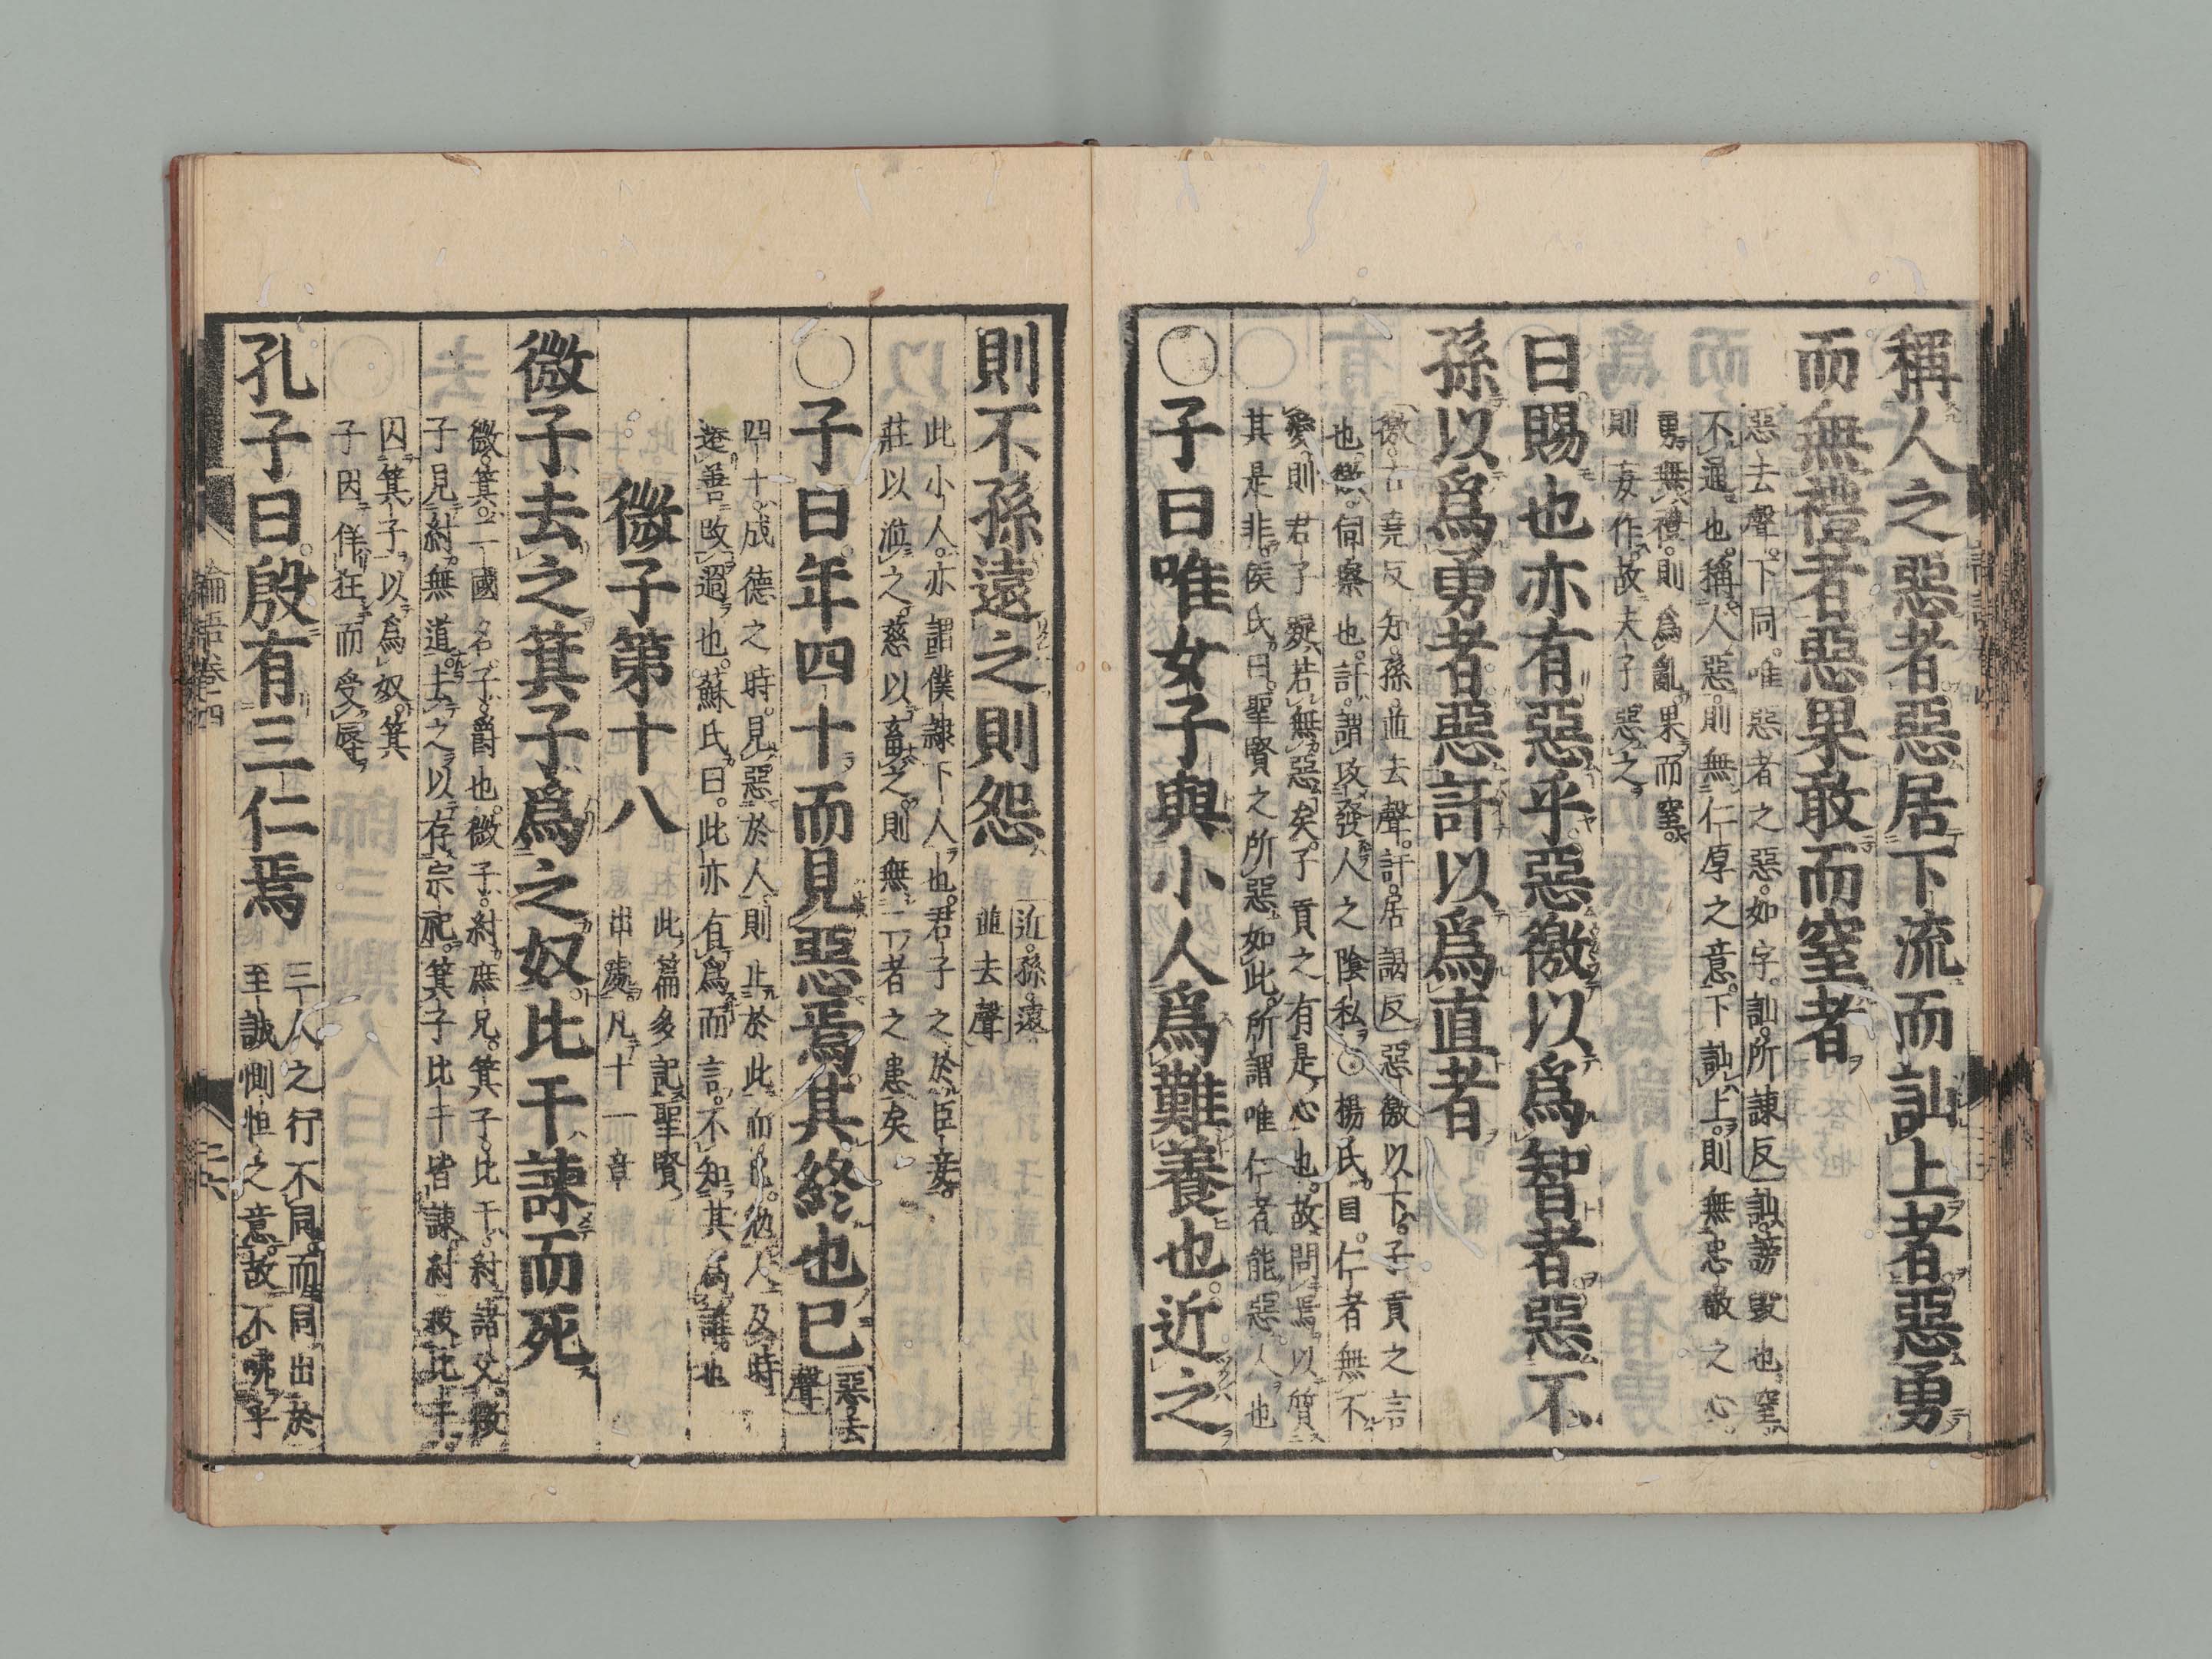 稱人之惡者惡居下流而訕上者惡勇
而無禮者惡果敢而窒者
惡去聲下同唯惡者之惡如字訕所諫反訕謗毀也窒
不通也稱人惡則無仁厚之意下訕上則無忠敬之心
勇無禮則為亂果而窒
則妄作故夫子惡之
曰賜也亦有惡乎惡徼以爲智者惡不
孫以爲勇者惡訐以爲直者
徼古堯反知孫並去聲訐居謁反惡徼以下子貢之言
也徼伺察也訐謂攻發人之陰私○楊氏曰仁者無不
愛則君子疑若無惡矣子貢之有是心也故問焉以質
其是非侯氏曰聖賢之所惡如此所謂唯仁者能惡人也
○子曰唯女子與小人爲難養也近之
則不孫遠之則怨
近孫遠
並去聲
此小人亦謂僕隸下人也君子之於臣妾
莊以涖之慈以畜之則無二者之患矣
○子曰年四十而見惡焉其終也已
惡去
聲
四十成德之時見惡於人則止於此而已勉人及時
遷善改過也蘇氏曰此亦有爲而言不知其爲誰也
微子第十八
此篇多記聖賢
出處凡十一章
微子去之箕子爲之奴比干諫而死
微箕二國名子爵也微子紂庶兄箕子比干紂諸父微
子見紂無道去之以存宗祀箕子比干皆諫紂殺比干
囚箕子以爲奴箕
子因佯狂而受辱
孔子曰殷有三仁焉
三人之行不同而同出於
至誠惻怛之意故不咈乎
論語卷四